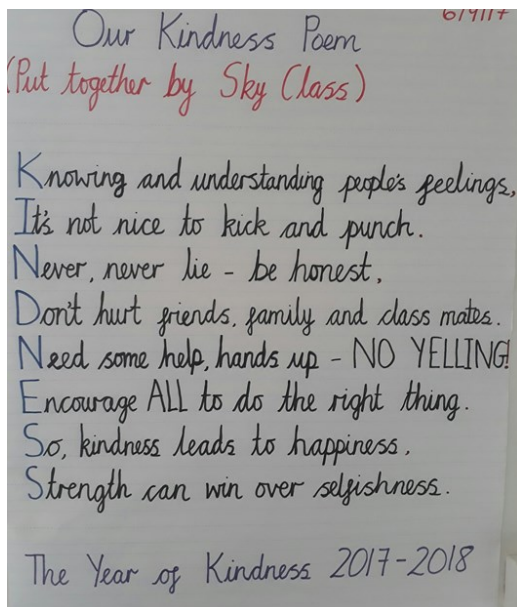 6/9/17
Our Kindness Poem
(Put together by Sky Class)
Knowing and understanding people's feelings,
It's not nice to kick and punch.
Never, never lie - be honest,
Don't hurt friends, family and class mates.
Need some help, hands up - NO YELLING!
Encourage ALL to do the right thing.
So, kindness leads to happiness,
Strength can win over selfishness.
The Year of Kindness 2017-2018